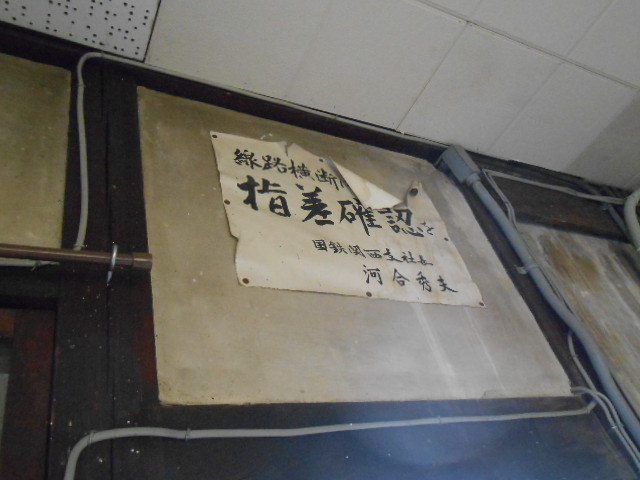 線路横断
指差確認を
国鉄関西支社長
河合秀夫